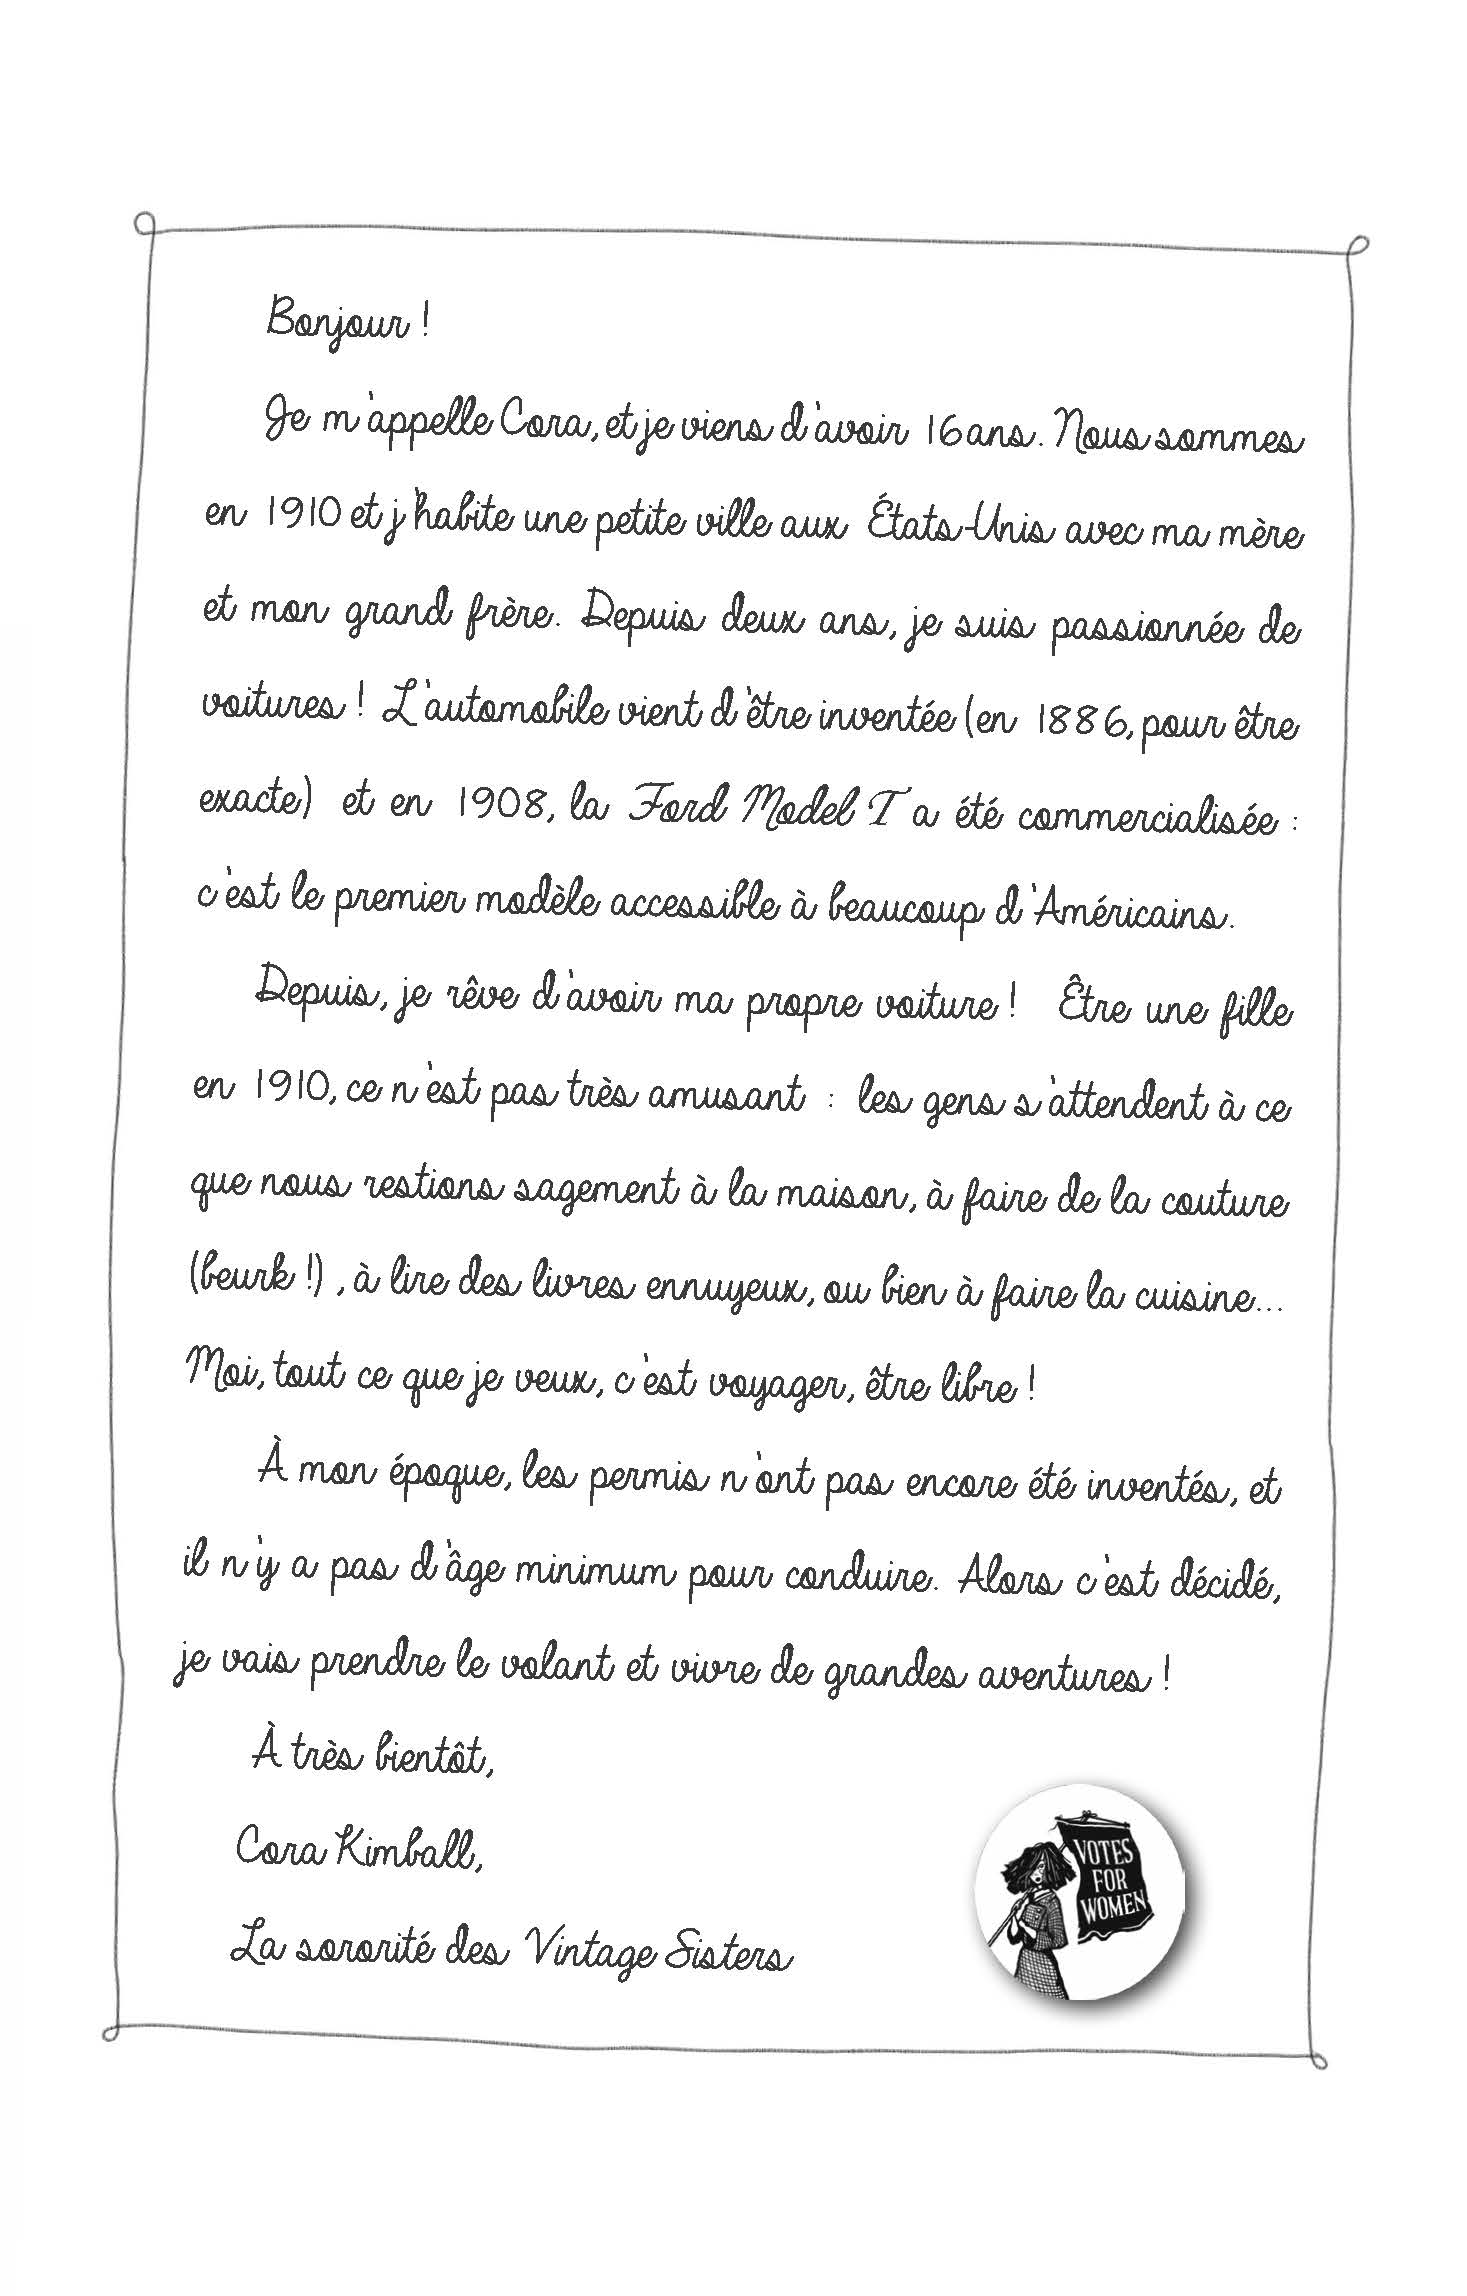 Bonjour !
Je m'appelle Cora, et je viens d'avoir 16 ans. Nous sommes
en 1910 et j'habite une petite ville aux États-Unis avec ma mère
et mon grand frère. Depuis deux ans, je suis passionnée de
voitures ! L'automobile vient d'être inventée (en 1886, pour être
exacte) et en 1908, la Ford Model T a été commercialisée :
c'est le premier modèle accessible à beaucoup d'Américains.
Depuis, je rêve d'avoir ma propre voiture ! Être une fille
en 1910, ce n'est pas très amusant : les gens s'attendent à ce
que nous restions sagement à la maison, à faire de la couture
(beurk !) , à lire des livres ennuyeux, ou bien à faire la cuisine...
Moi, tout ce que je veux, c'est voyager, être libre !
À mon époque, les permis n'ont pas encore été inventés, et
il n'y a pas d'âge minimum pour conduire. Alors c'est décidé,
je vais prendre le volant et vivre de grandes aventures !
À très bientôt,
Cora Kimball,
La sororité des Vintage Sisters
VOTES
FOR
WOMEN